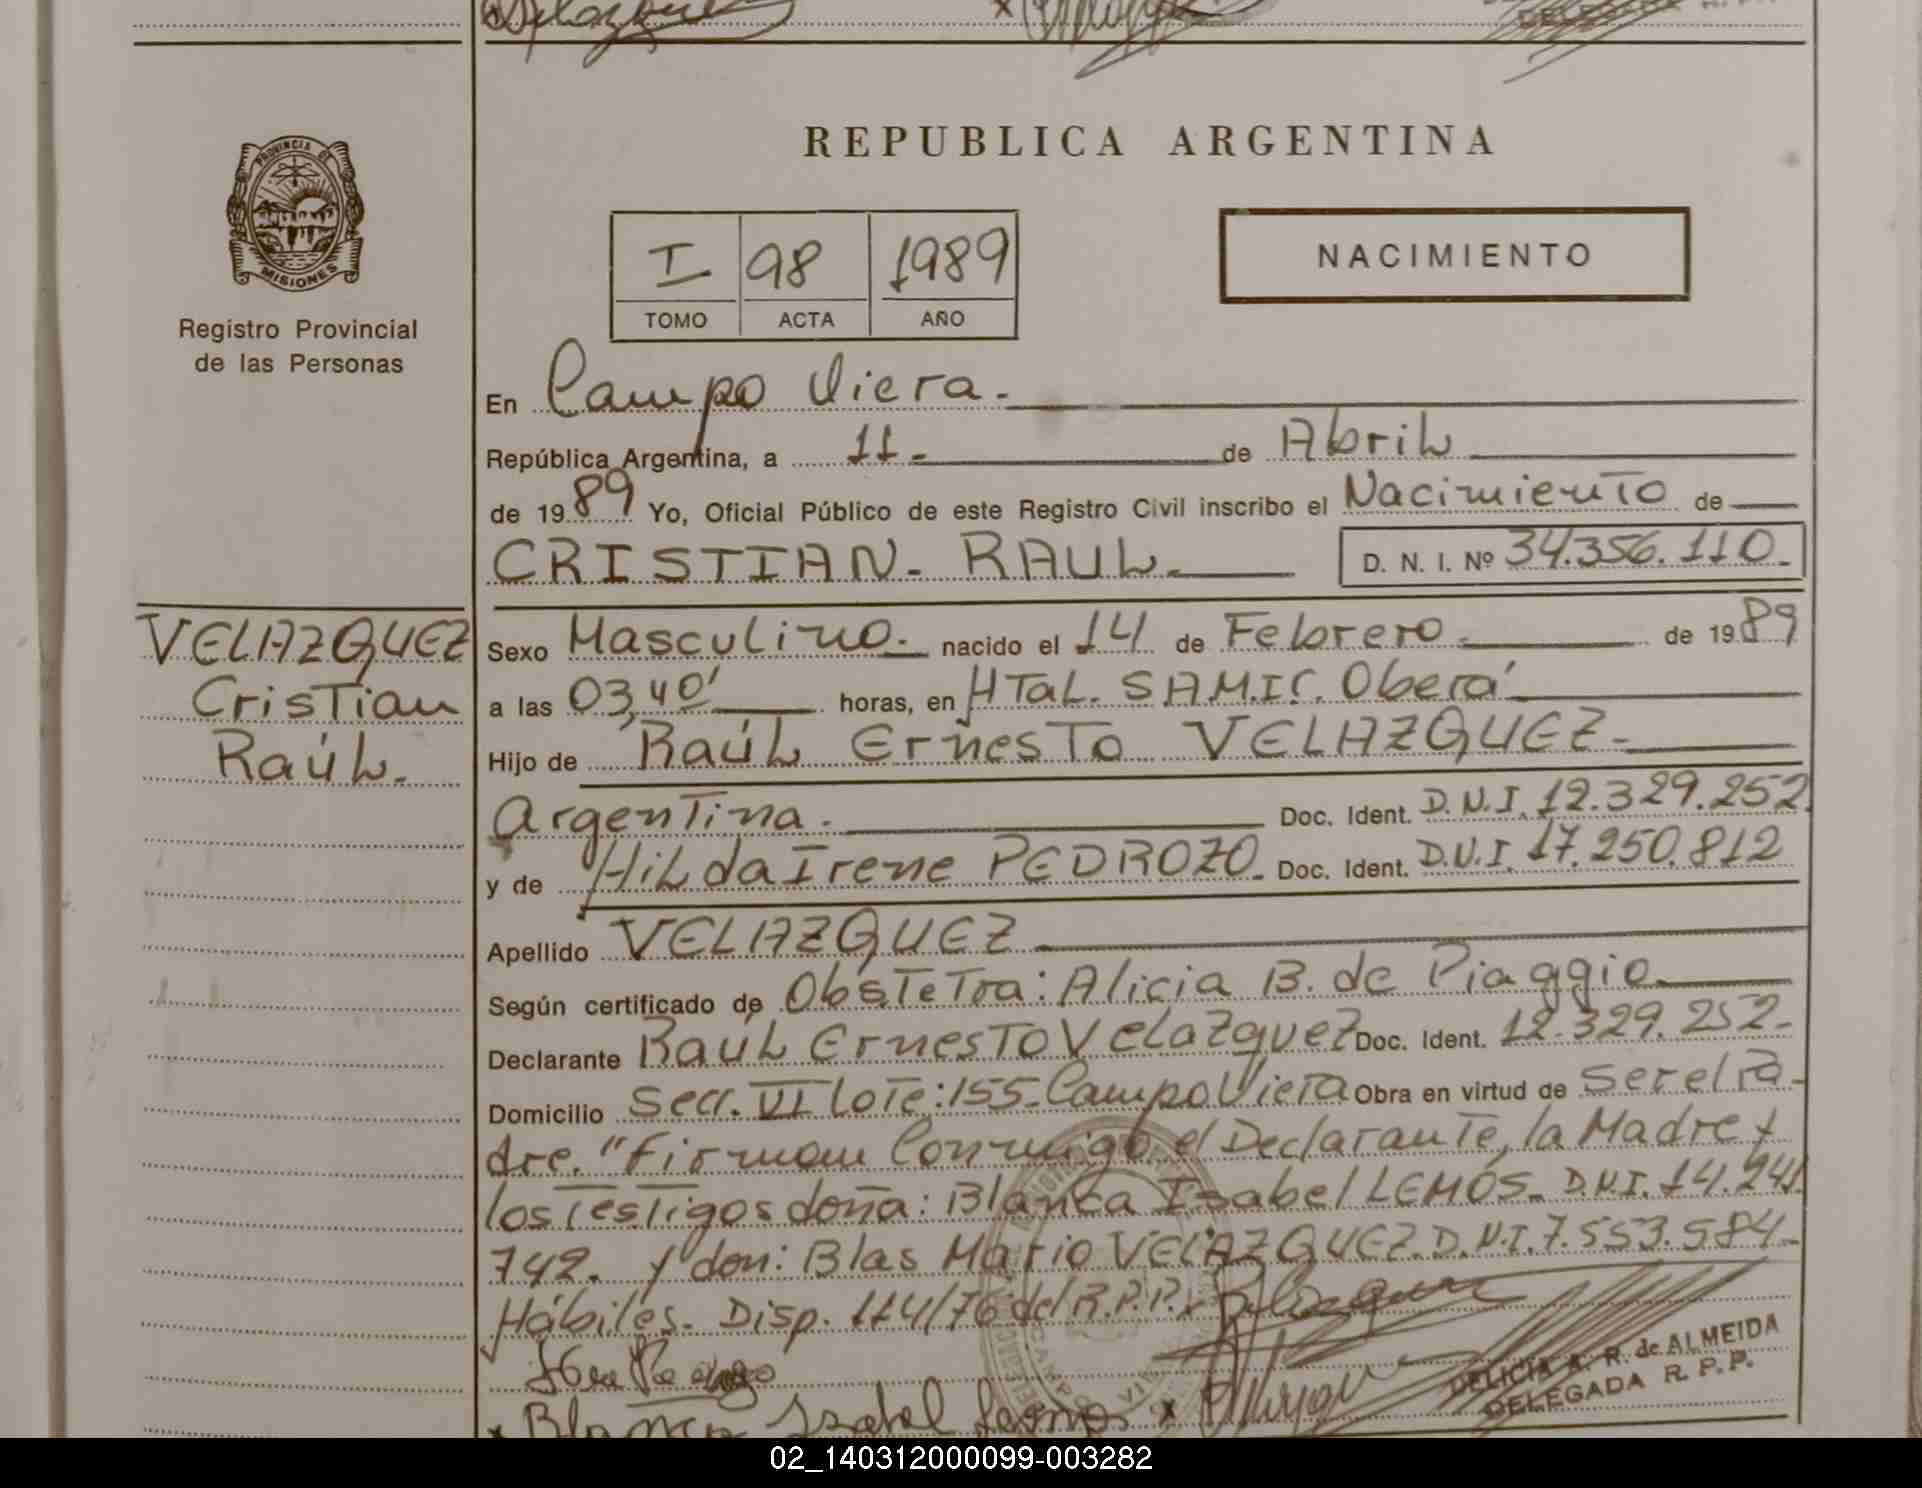 PROVINCIA DE
MISIONES
Registro Provincial
de las Personas
REPUBLICA ARGENTINA
I 98 1989
TOMO ACTA AÑO
NACIMIENTO
En Campo Viera.
República Argentina, a 11. de Abril
de 1989 Yo, Oficial Público de este Registro Civil inscribo el Nacimiento de
CRISTIAN. RAUL. D. N. I. Nº 34.356.110.
VELAZQUEZ
Cristian
Raúl.
Sexo Masculino. nacido el 14 de Febrero. de 1989
a las 03,40' horas, en HTal. S.A.M.I.C. Oberá
Hijo de Raúl Ernesto VELAZQUEZ.
Argentina. Doc. Ident. D.N.I. 12.329.252.
y de Hilda Irene PEDROZO. Doc. Ident. D.N.I. 17.250.812
Apellido VELAZQUEZ
Según certificado de Obstetra: Alicia B. de Piaggio
Declarante Raúl Ernesto Velazquez Doc. Ident. 12.329.252.
Domicilio Secc. VI lote: 155. Campo Viera Obra en virtud de ser el Pa-
dre. "Firman Conmigo el Declarante, la Madre y
los Testigos doña: Blanca Isabel LEMOS. D.N.I. 14.241.
742. y don: Blas Mario VELAZQUEZ. D.N.I. 7.553.584.
Hábiles. Disp. 114/76 del R.P.P.
Blanca Isabel Lemos x
DELICIA A. R. de ALMEIDA
DELEGADA R. P. P.
02_140312000099-003282